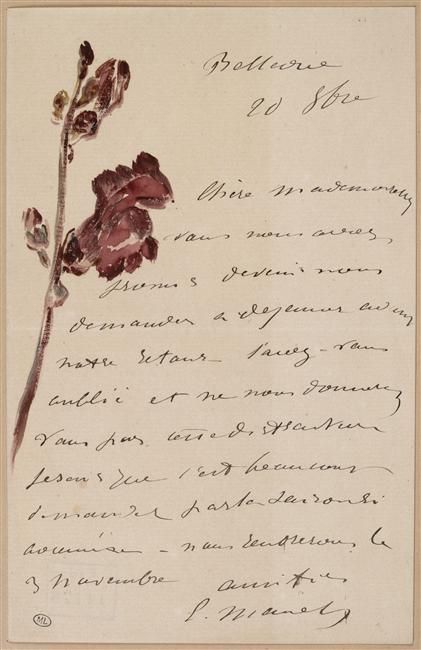 Bellevue
20 8bre
Chère mademoiselle
vous nous aviez
promis de venir nous
demander à déjeuner avant
notre retour l'avez-vous
oublié et ne nous donnerez
vous pas cette distraction
je sais que c'est beaucoup
demander par la saison si
avancée - nous rentrerons le
3 novembre amitiés
E. Manet
ML